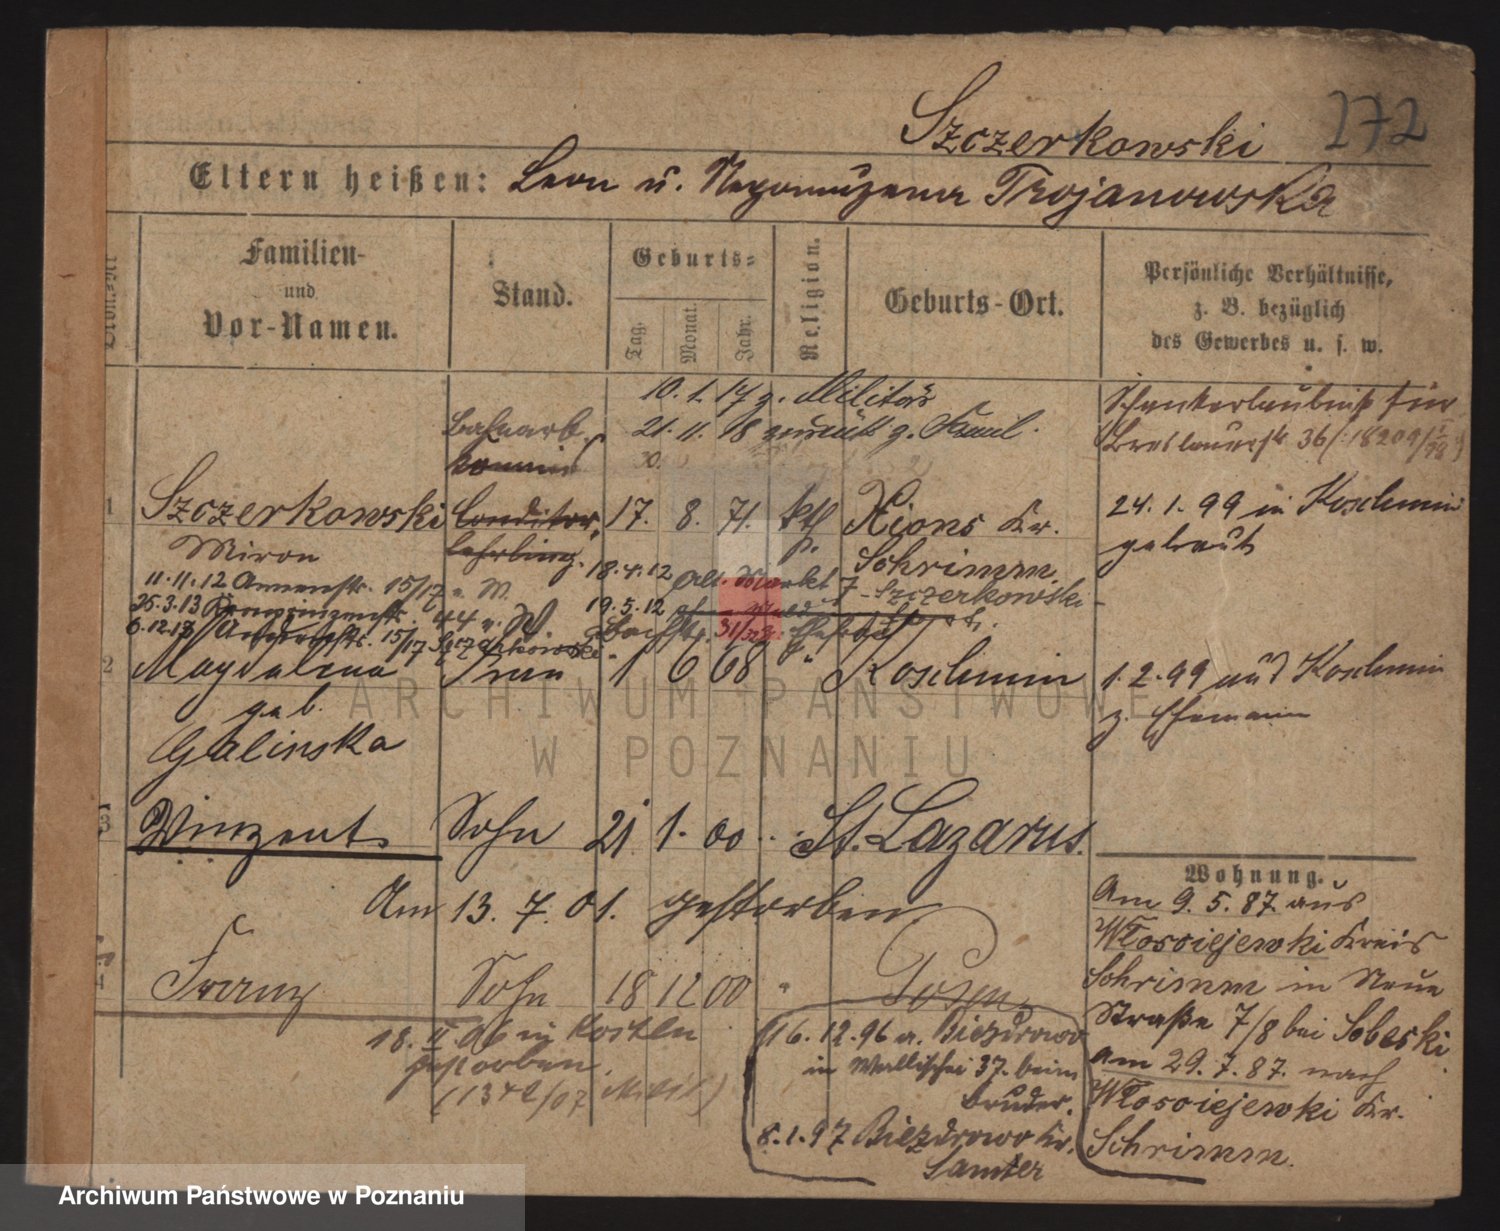 272
Szczerkowski
Eltern heißen: Leon u. Nepomuzena Trojanowska
Familien-
und
Vor-Namen.
Stand.
Geburts-
Tag.
Monat.
Jahr.
Religion.
Geburts-Ort.
Persönliche Verhältnisse,
z. B. bezüglich
des Gewerbes u. s. w.
10. 1. 17 z. Militär
21. 11. 18 zurück z. Famil.
Bahnarb.
Schankerlaubniß für
Breslauerstr. 36
1 Szczerkowski Conditor 17. 8. 71. kth. Xions Kr.
Miron
lehrling.
Schrimm.
24. 1. 99 in Koschmin
getraut
11. 11. 12 Annenstr. 15/17 v. W.
18. 4. 12 Alt. Markt 7 Szczerkowski
25. 3. 13 Kronprinzenstr. 44 v. W.
19. 5. 12
6. 12. 13 Annenstr. 15/17
2 Magdalena Frau 1 6 68 " Koschmin
geb.
Galinska
1. 2. 99 aus Koschmin
z. Ehemann
3 Winzent Sohn 21 1. 00 St. Lazarus.
Am 13. 7. 01. gestorben.
4 Franz Sohn 18 12 00 " Posen
18. II. 06 in Kosten
gestorben.
Wohnung.
Am 9. 5. 87. aus
Wlosciejewki Kreis
Schrimm in Neue
Straße 7/8 bei Sobeski.
Am 29. 7. 87. nach
Wlosciejewki Kr.
Schrimm.
16. 12. 96 a. Biezdrowo
in Wallischei 37. beim
Bruder.
8. 1. 97 Biezdrowo Kr.
Samter
ARCHIWUM PAŃSTWOWE
W POZNANIU
Archiwum Państwowe w Poznaniu